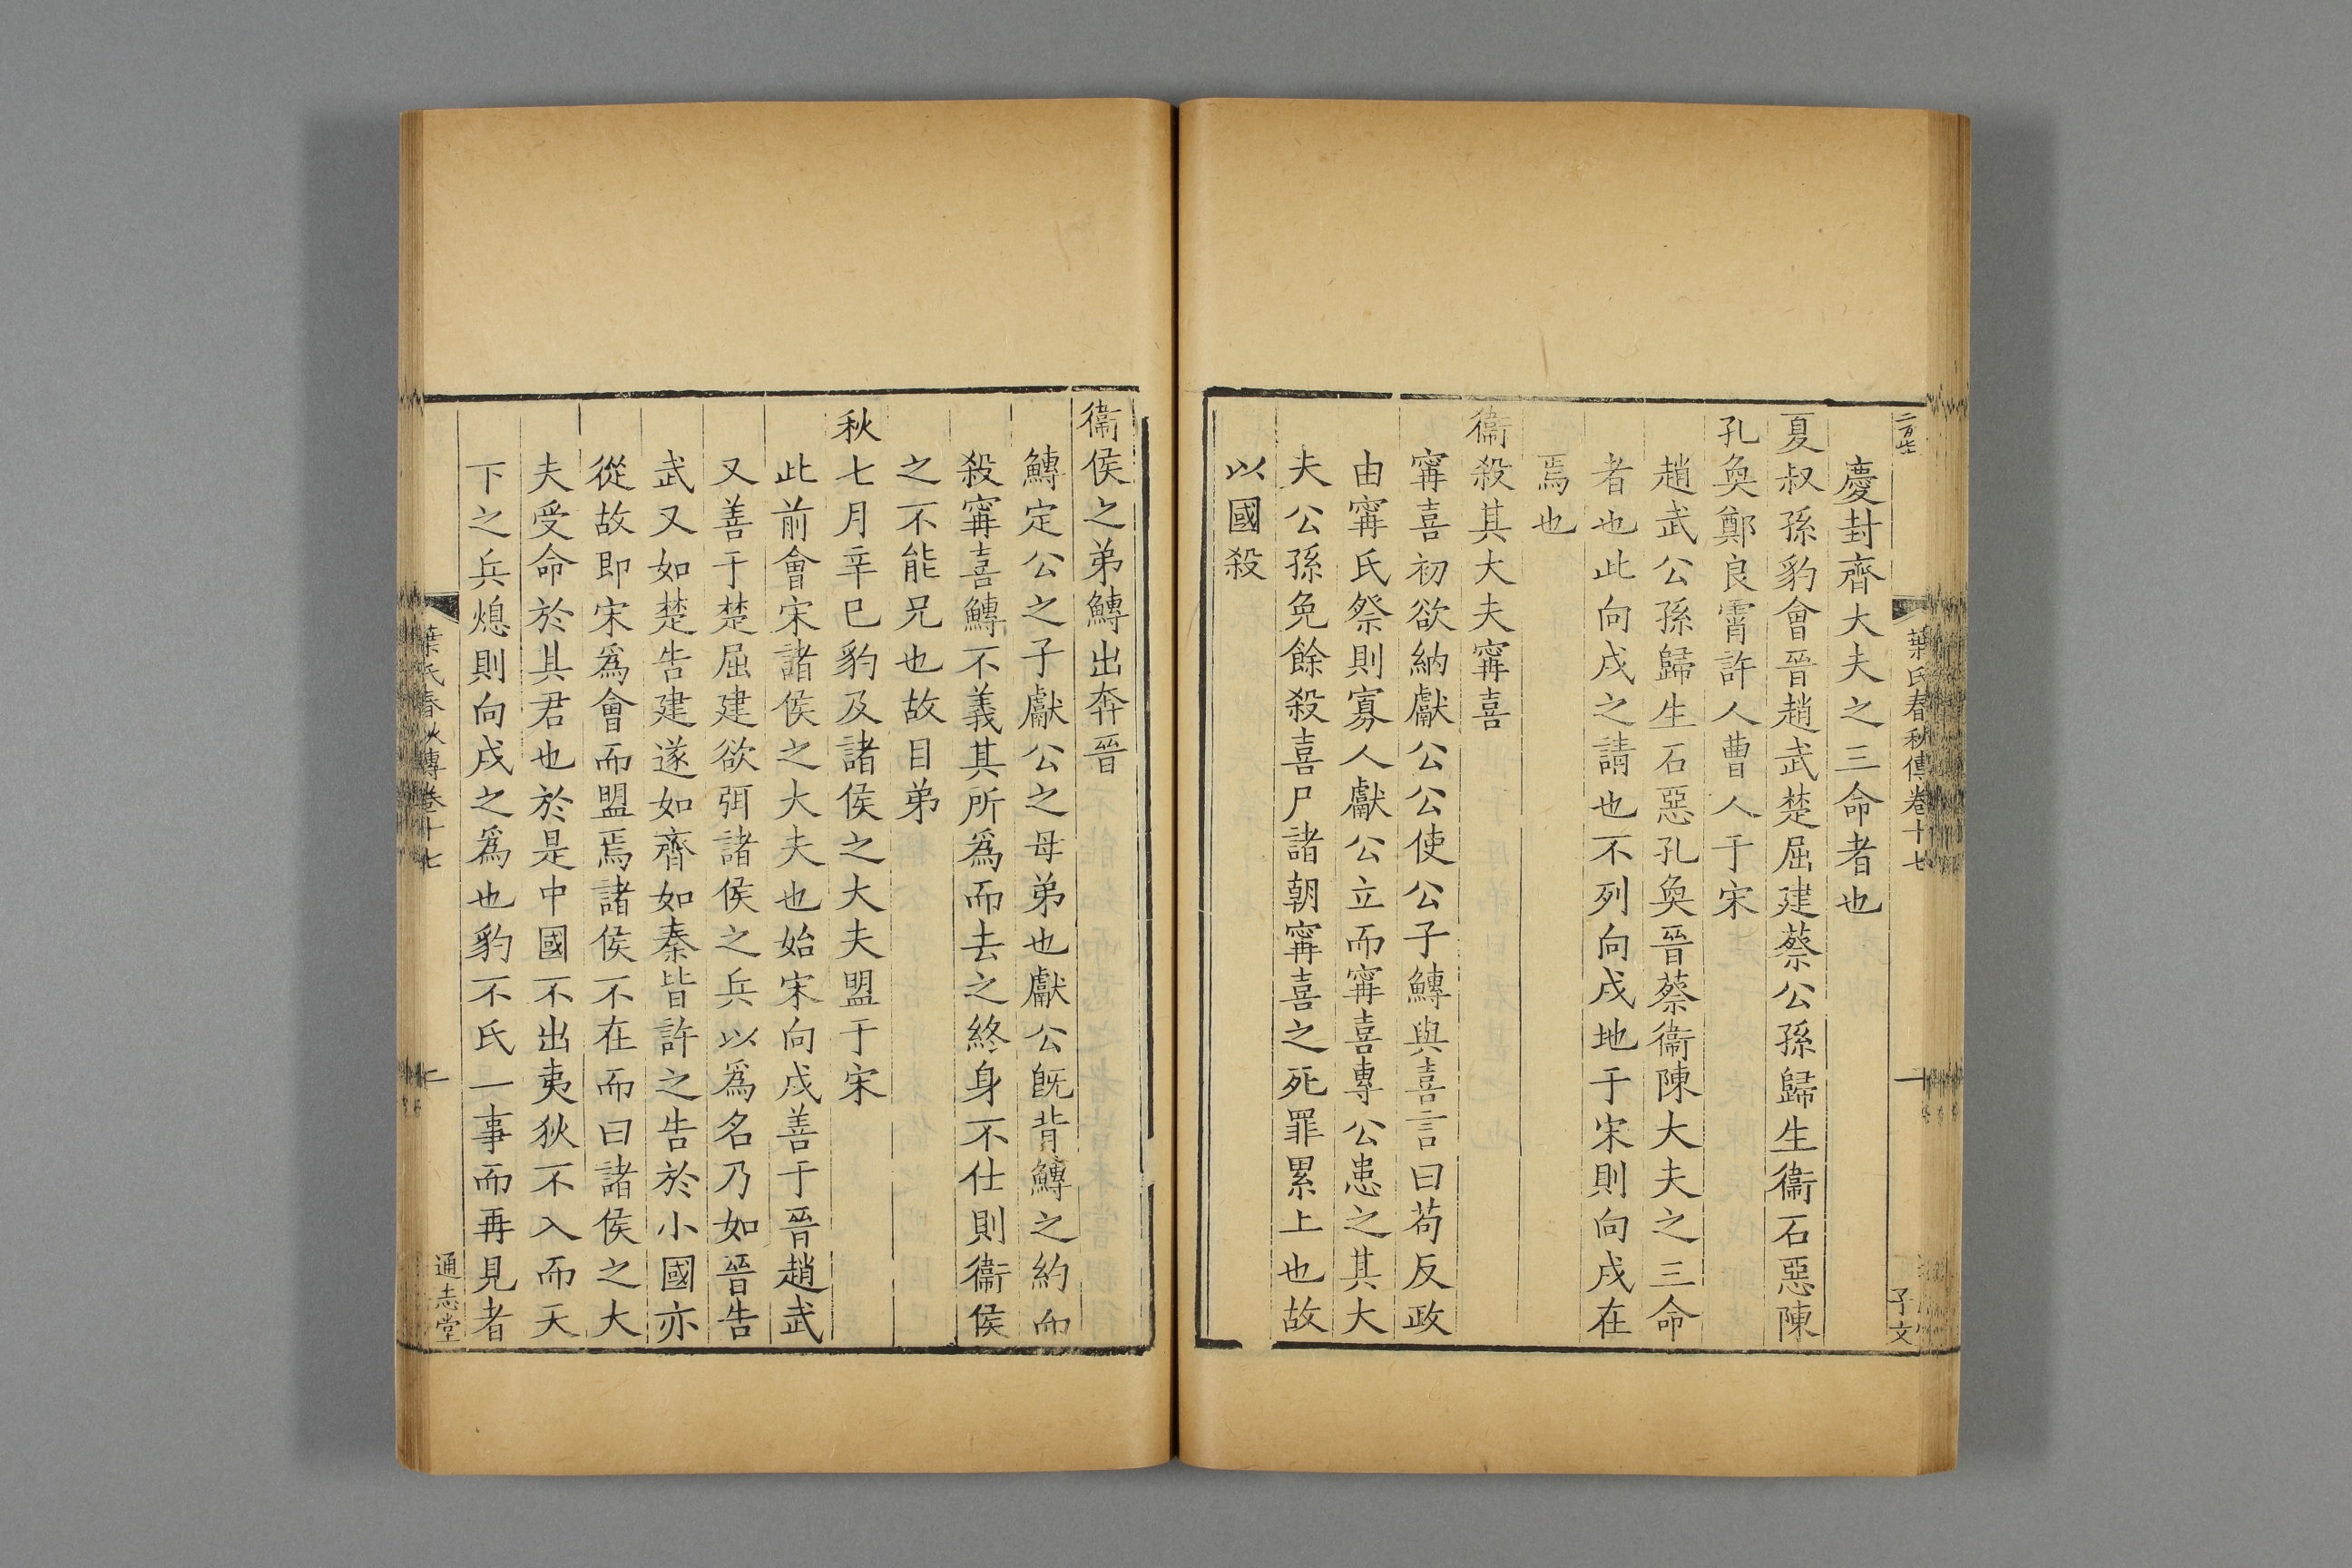 葉氏春秋傳卷十七
一
子文
慶封齊大夫之三命者也
夏叔孫豹會晉趙武楚屈建蔡公孫歸生衞石惡陳
孔奐鄭良霄許人曹人于宋
趙武公孫歸生石惡孔奐晉蔡衞陳大夫之三命
者也此向戌之請也不列向戌地于宋則向戌在
焉也
衞殺其大夫甯喜
甯喜初欲納獻公公使公子鱄與喜言曰苟反政
由甯氏祭則寡人獻公立而甯喜專公患之其大
夫公孫免餘殺喜尸諸朝甯喜之死罪累上也故
以國殺
衞侯之弟鱄出奔晉
鱄定公之子獻公之母弟也獻公旣背鱄之約而
殺甯喜鱄不義其所爲而去之終身不仕則衞侯
之不能兄也故目弟
秋七月辛巳豹及諸侯之大夫盟于宋
此前會宋諸侯之大夫也始宋向戌善于晉趙武
又善于楚屈建欲弭諸侯之兵以爲名乃如晉告
武又如楚告建遂如齊如秦皆許之告於小國亦
從故即宋爲會而盟焉諸侯不在而曰諸侯之大
夫受命於其君也於是中國不出夷狄不入而天
下之兵熄則向戌之爲也豹不氏一事而再見者
葉氏春秋傳卷十七
二
通志堂